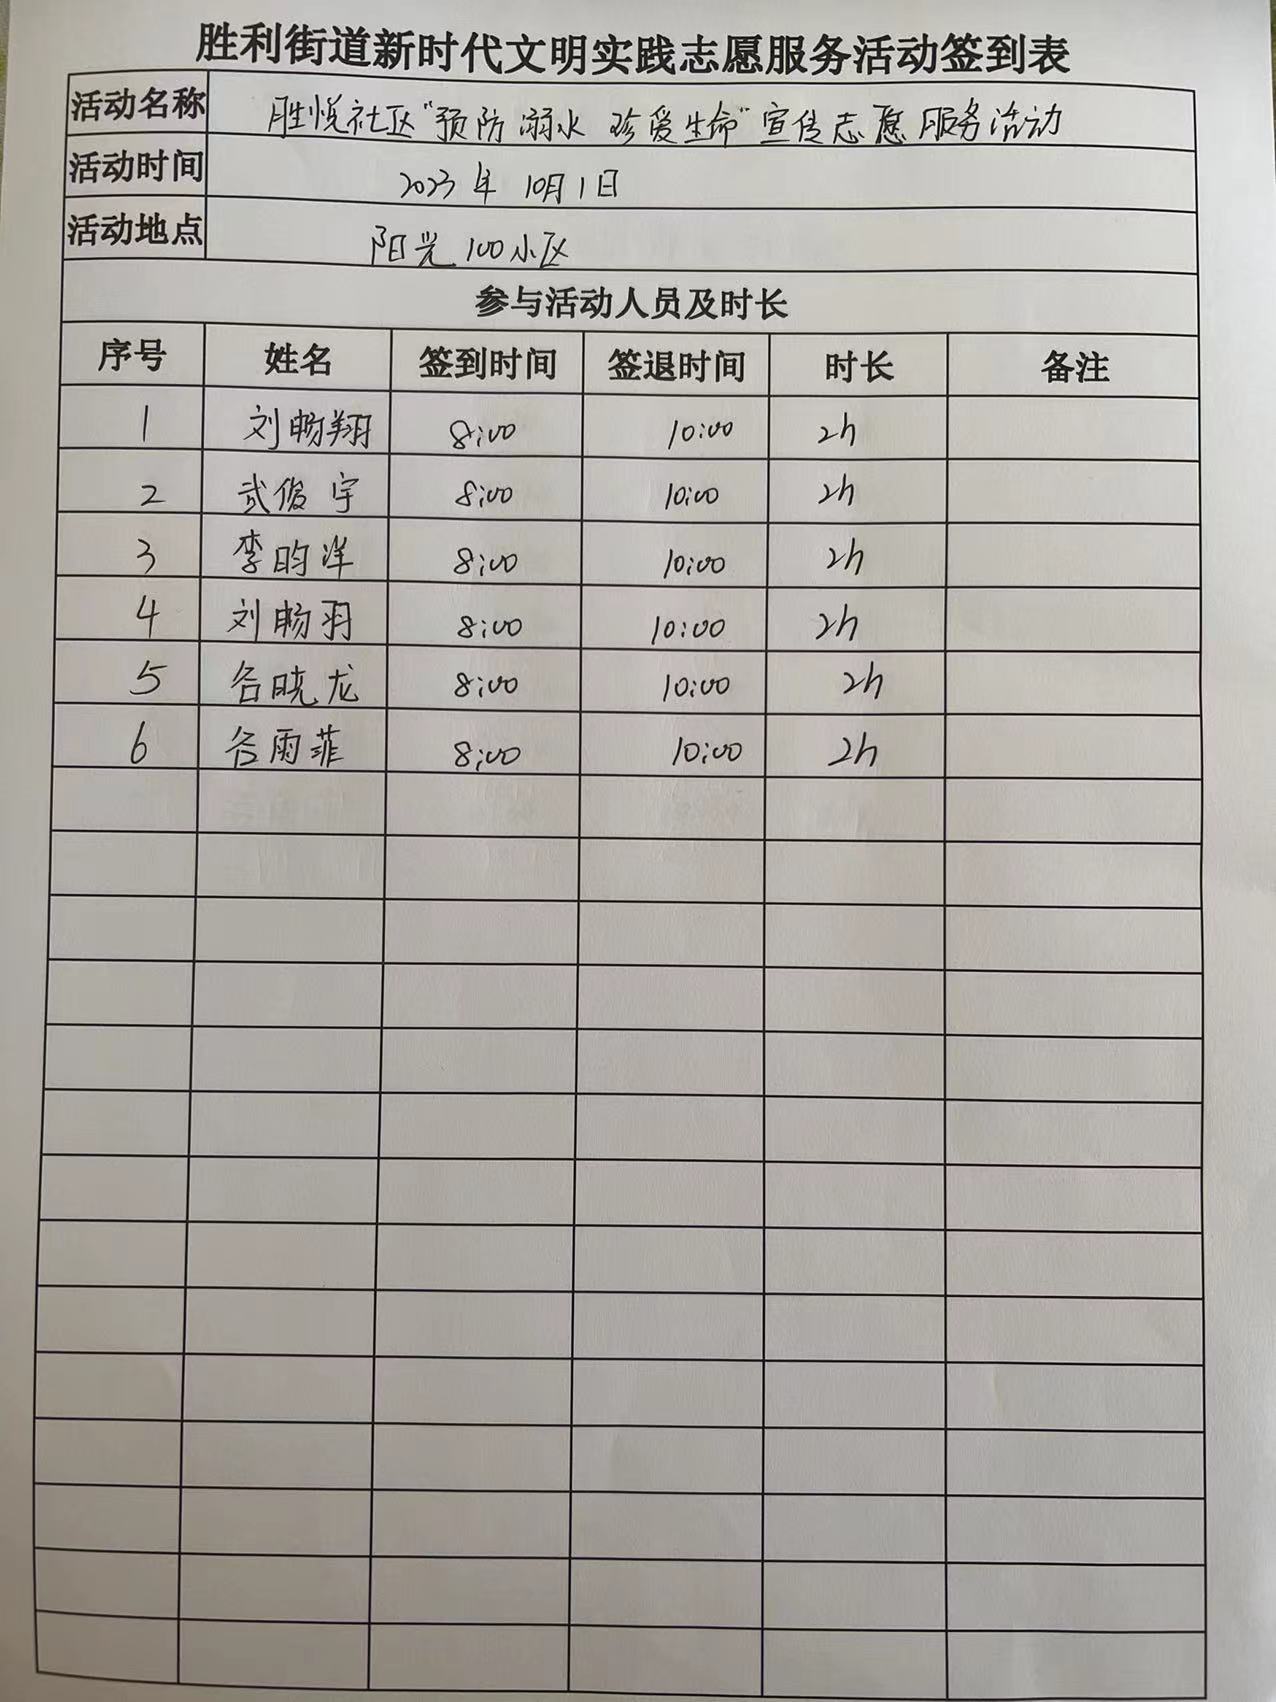 胜利街道新时代文明实践志愿服务活动签到表
活动名称 胜悦社区“预防溺水 珍爱生命”宣传志愿服务活动
活动时间 2023年10月1日
活动地点 阳光100小区
参与活动人员及时长
序号 姓名 签到时间 签退时间 时长 备注
1 刘畅翔 8:00 10:00 2h
2 武俊宇 8:00 10:00 2h
3 李昀洋 8:00 10:00 2h
4 刘畅羽 8:00 10:00 2h
5 谷晓龙 8:00 10:00 2h
6 谷雨菲 8:00 10:00 2h